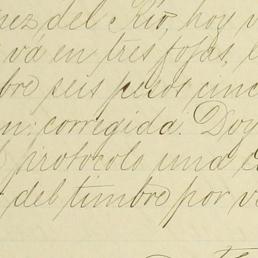 nez del Río, hoy v
va en tres fojas, c
bre seis pesos cinc
n: corregida. Doy
protocolo una es
del timbre por v